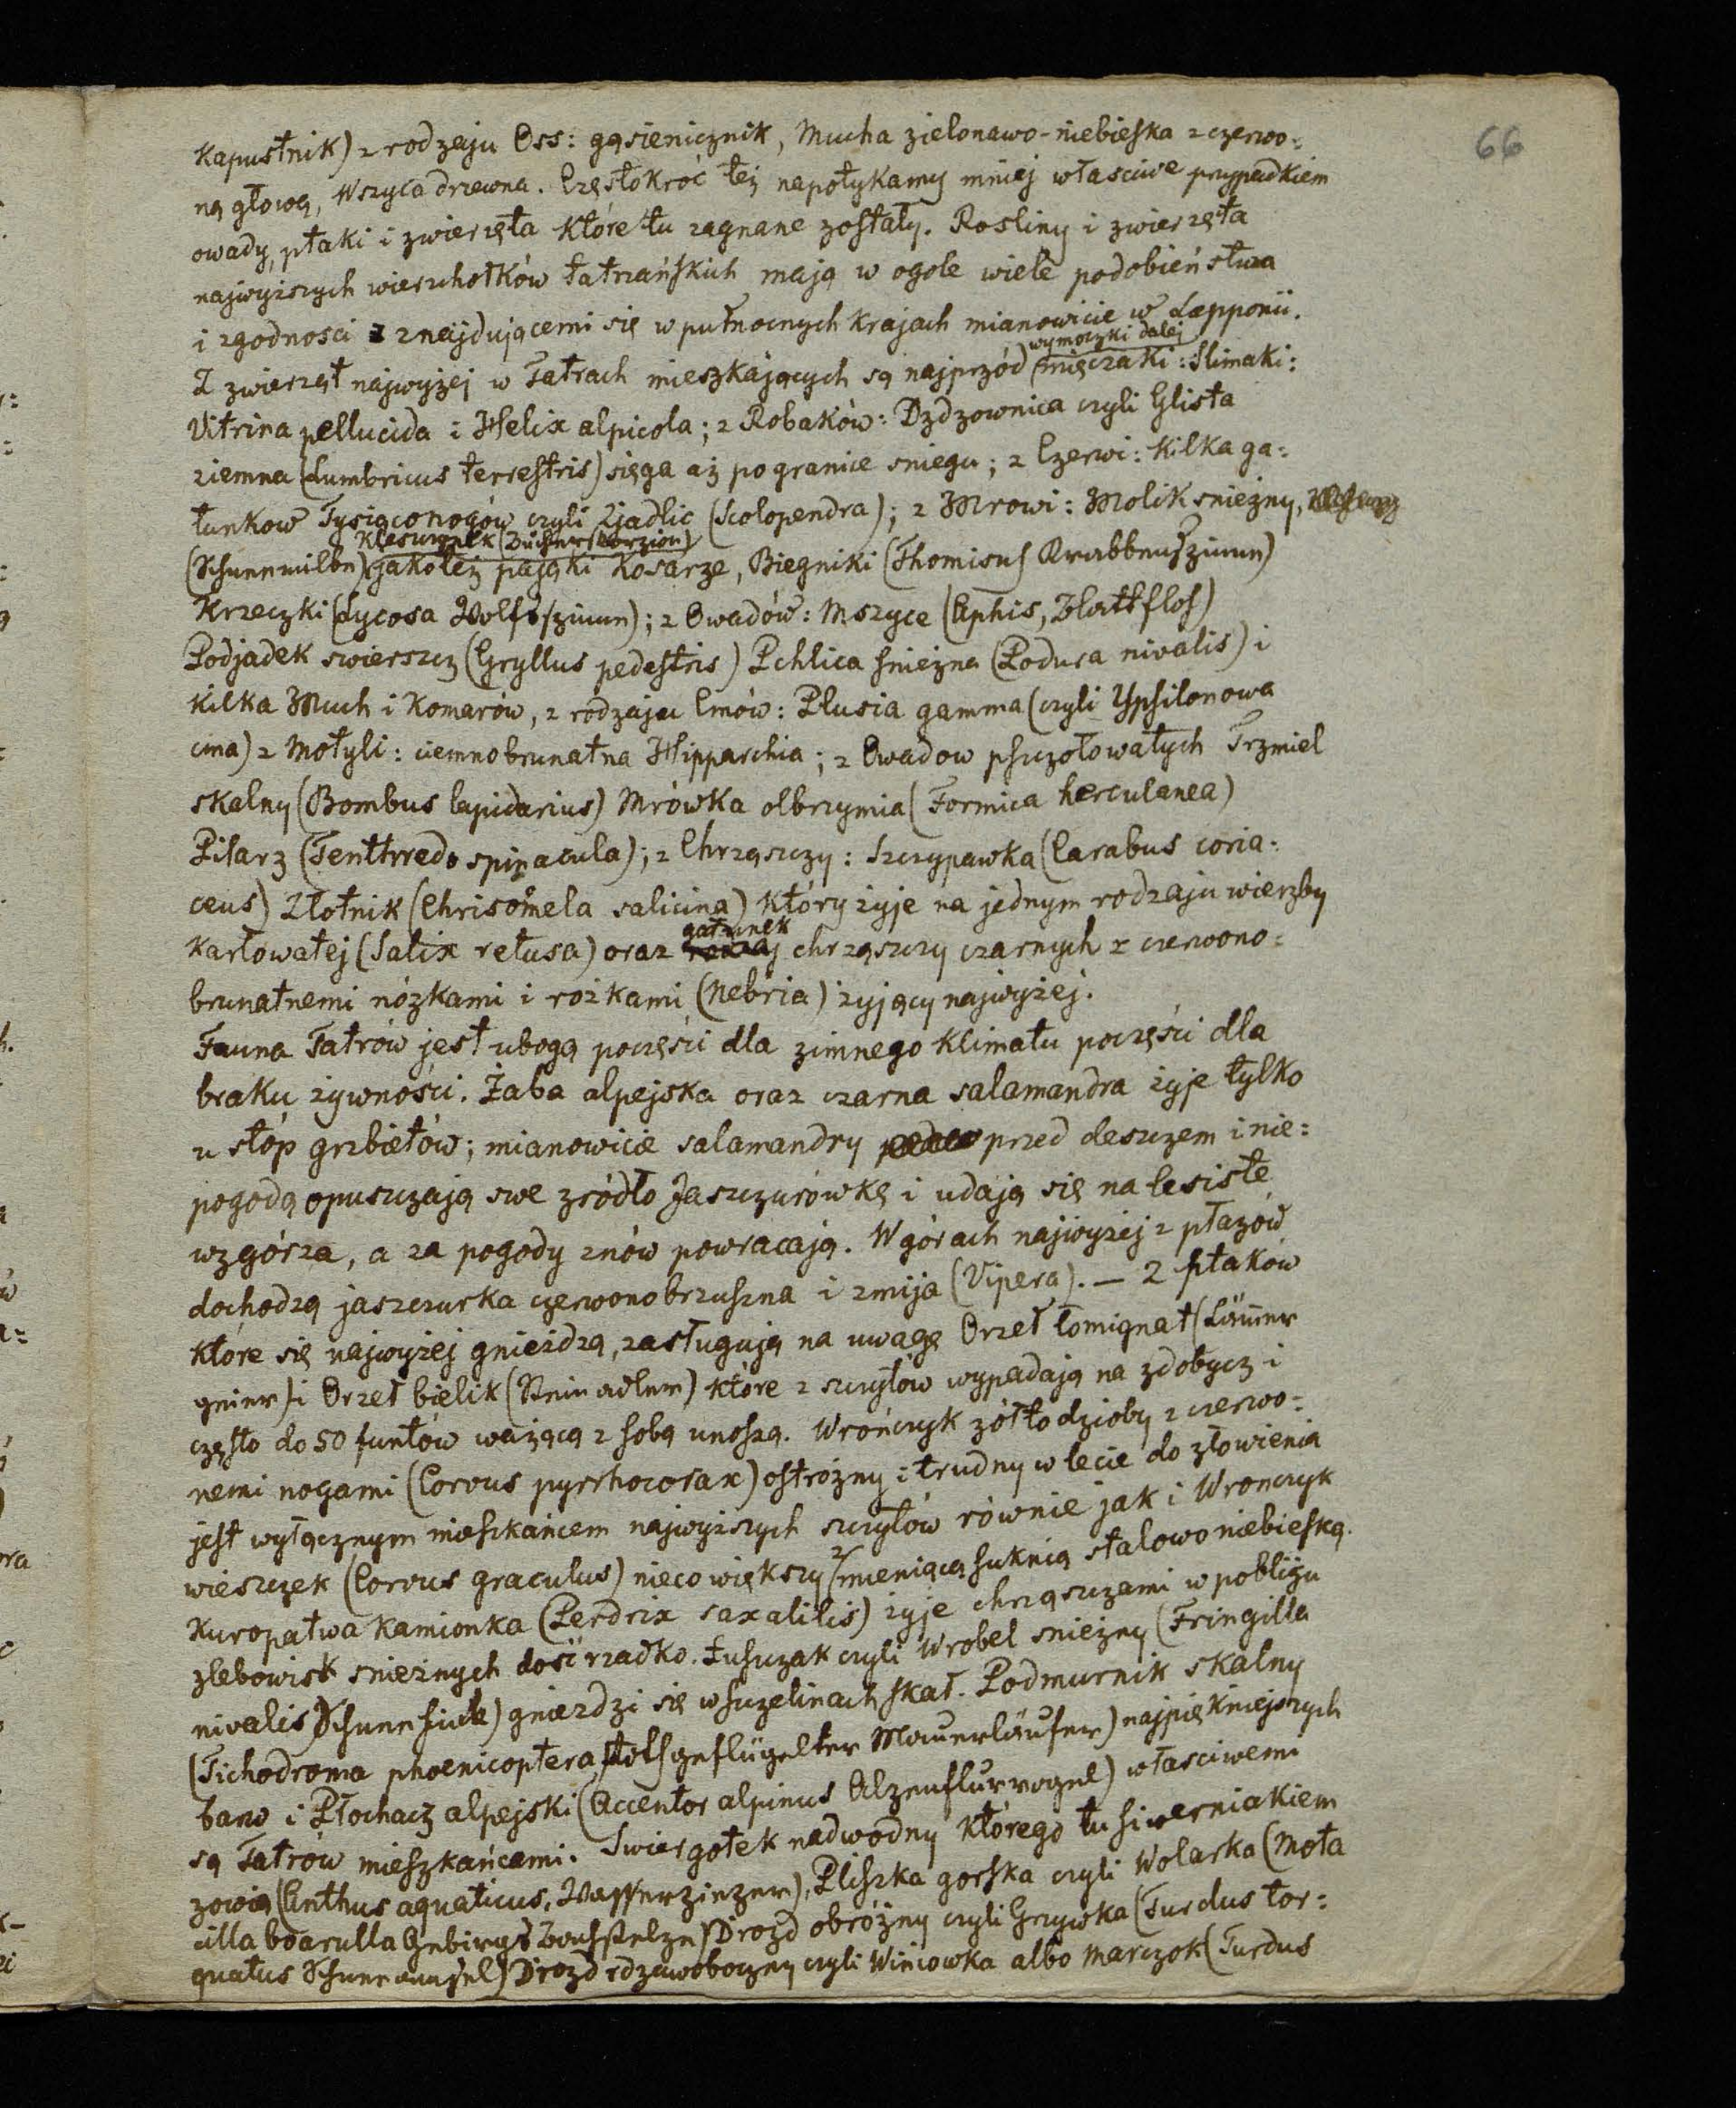 66
Kapustnik) z rodzaju Oss: gąsienicznik, Mucha zielonawo-niebieska z czerwo=
ną głową, Wszyca drzewna. Częstokroć też napotykamy mniej właściwe przypadkiem
owady, ptaki i zwierzęta które tu zagnane zostały. Rosliny i zwierzęta
najwyższych wierzchołków tatrzańskich mają w ogole wiele podobieństwa
i zgodności z znajdującemi się w pułnocnych krajach mianowicie w Lapponii.
wymoczki dalej
Z zwierząt najwyżej w Tatrach mieszkających są najprzód mięczaki: Slimaki:
Vitrina pellucida i Helix alpicola; z Robaków: Dzdzownica czyli Glista
ziemna (Lumbricus terrestris) sięga aż po granice sniegu; z Czerwi: kilka ga=
tunkow Tysiąconogów czyli Zjadlic (Scolopendra); z Mrowi: Molik snieżny,
Klesurzek (Bücherskorzion)
(Schneemilbe) jakoteż pająki Kosarze, Biegniki (Thomisus Krabbenspinne)
Krzeczki (Lycosa Wolfsspinne); z Owadów: Mszyce (Aphis, Blattfloh)
Podjadek swierszcz (Gryllus pedestris) Pchlica snieżna (Podura nivalis) i
kilka Much i Komarów, z rodzaju Cmów: Plusia gamma (czyli Ypsilonowa
cma) z Motyli: ciemnobrunatna Hipparchia; z Owadow pszczołowatych Trzmiel
skalny (Bombus lapidarius) Mrówka olbrzymia (Formica herculanea)
Pilarz (Tenthredo spinacula); z Chrząszczy: Szczypawka (Carabus coria=
ceus) Złotnik (Chrisomela salicina) który żyje na jednym rodzaju wierzby
gatunek
karłowatej (Salix retusa) oraz rodzaj chrząszczy czarnych z czerwono=
brunatnemi nóżkami i rożkami (Nebria) żyjący najwyżej.
Fauna Tatrów jest ubogą poczęści dla zimnego klimatu poczęści dla
braku żywności. Żaba alpejska oraz czarna salamandra żyje tylko
u stóp grzbietów; mianowicie salamandry przed deszczem i nie=
pogodą opuszczają swe zródło Jaszczurówkę i udają się na lesiste
wzgórza, a za pogody znów powracają. W górach najwyżej z płazów
dochodzą jaszczurka czerwonobrzuszna i zmija (Vipera). — Z ptaków
które się najwyżej gnieżdzą, zasługują na uwagę Orzeł łomignat (Lämer
geier) i Orzeł bielik (Steinadler) które z szczytów wypadają na zdobycz i
często do 50 funtów ważącą z sobą unoszą. Wrończyk żółtodzioby z czerwo=
nemi nogami (Corvus pyrrhocorax) ostrożny i trudny w lecie do złowienia
jest wyłącznym mieszkańcem najwyższych szczytów równie jak i Wronczyk
wieszczek (Corvus graculus) nieco większy z mieniącą suknią stalowo niebieską.
Kuropatwa kamionka (Perdrix saxatilis) żyje chrząszczami w pobliżu
zlebowisk snieżnych dość rzadko. Łuszczak czyli Wrobel snieżny (Fringilla
nivalis Schneefink) gniezdzi się w szczelinach skał. Podmurnik skalny
(Tichodroma phoenicoptera, rothgeflügelter Mauerläufer) najpiękniejszych
barw i Płochacz alpejski (Accentor alpinus Alpenflurvogel) właściwemi
są Tatrów mieszkańcami. Swiergotek nadwodny którego tu siwerniakiem
zowią (Anthus aquaticus, Wasserpieper), Pliszka gorska czyli Wolarka (Mota
cilla boarulla Gebirgs Bachstelze) Drozd obróżny czyli Grzywka (Turdus tor=
quatus Schneeamsel) Drozd rdzawoboczny czyli Winiowka albo Marczok (Turdus